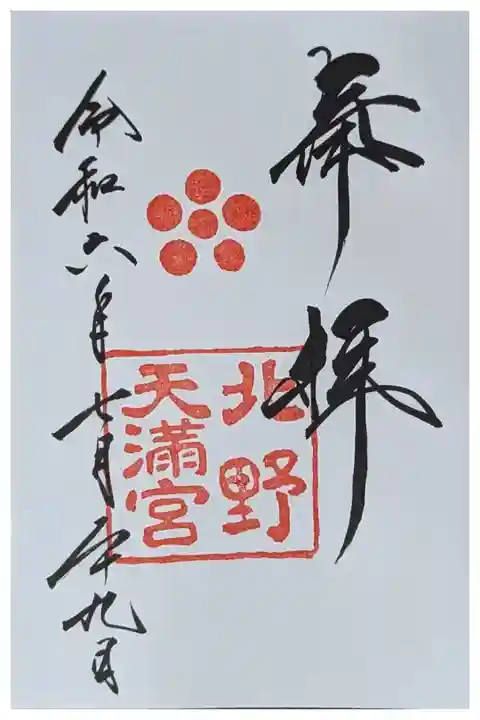 奉拝
北野
天満宮
令和六年七月二十九日